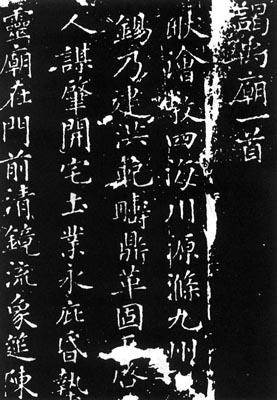 謁禹廟一首
畎澮敷四海川源滌九州
錫乃建洪範疇鼎革固天啓
人謀肇開宅土業永庇昏墊
靈廟在門前清鏡流象筵陳